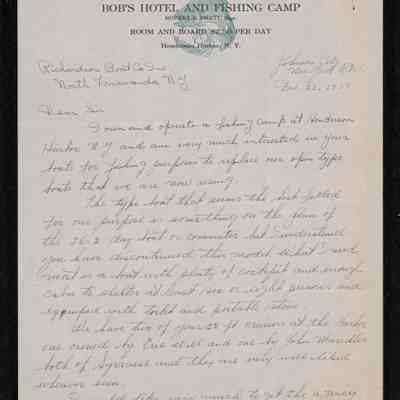 BOB'S HOTEL AND FISHING CAMP
ROOM AND BOARD $2.50 PER DAY
Henderson Harbor, N. Y.
Johnson City
New York
Richardson Boat Co Inc
North Tonawanda N Y
Dear Sir
I own and operate a fishing camp at Henderson
Harbor N Y and am very much interested in your
boats for fishing purpose to replace our open type
boats that we are now using.
The type boat that seems the best fitted
for our purpose is something on the
of the 26-2 day boat or commuter but I understand
you have discontinued this model
is a boat with plenty of cockpit and enough
cabin to shelter at least six or eight persons and
equipped with toilet and
We have two of your cruisers at the Harbor
one owned by and one by John
both of Syracuse and they are very well liked
wherever seen.
like very much to get the agency